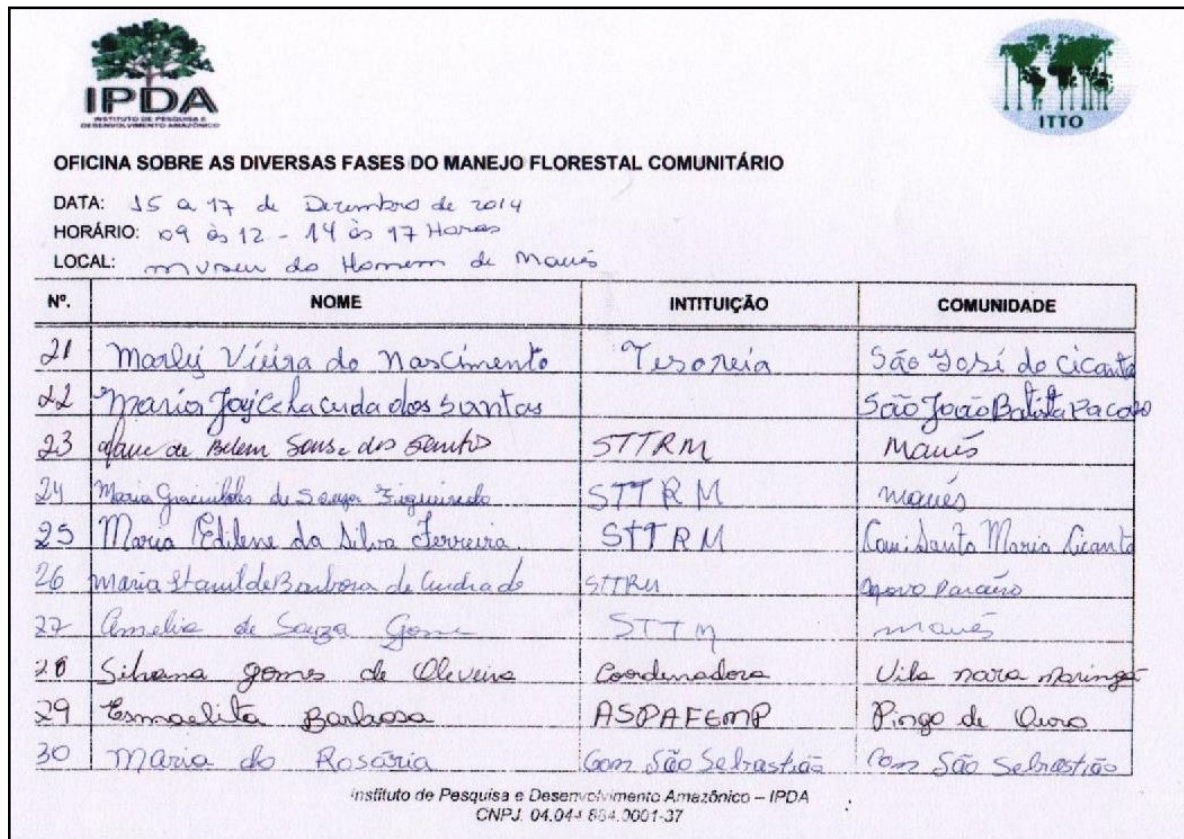 IPDA
INSTITUTO DE PESQUISA E
DESENVOLVIMENTO AMAZÔNICO
ITTO
OFICINA SOBRE AS DIVERSAS FASES DO MANEJO FLORESTAL COMUNITÁRIO
DATA: 15 a 17 de Dezembro de 2014
HORÁRIO: 09 às 12 - 14 às 17 Horas
LOCAL: museu do Homem de Maués
Nº. NOME INTITUIÇÃO COMUNIDADE
21 Marly Vieira do nascimento Tesoreia São José do Cicanta
22 Maria dos Santos São João Batista
23 de Belem dos Santos STTRM Maués
24 Maria de Souza Figueiredo STTRM maués
25 Maria Edilene da Silva Ferreira STTRM Santa Maria Cicanta
26 maria Barbosa de STTRM
27 Amelia de Souza Gome STTM maués
28 Silvana gomes de Oliveira Coordenadora Vila
29 Esmaelita Barbosa ASPAFEMP Pingo de Ouro
30 maria do Rosária Com São Sebastião Com São Sebastião
Instituto de Pesquisa e Desenvolvimento Amazônico – IPDA
CNPJ. 04.044.864.0001-37